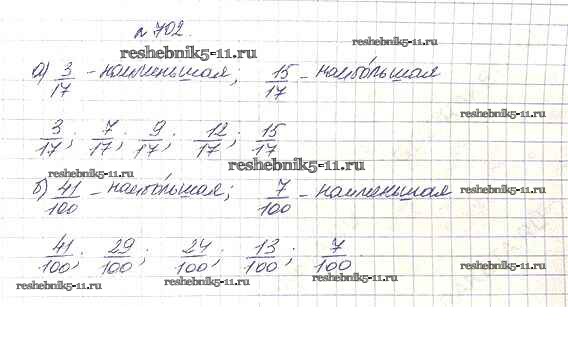 № 702.
reshebnik5-11.ru
reshebnik5-11.ru
а) 3/17 - наименьшая; 15/17 - наибольшая
reshebnik5-11.ru
3/17; 7/17; 9/17; 12/17; 15/17
reshebnik5-11.ru
reshebnik5-11.ru
б) 41/100 - наибольшая; 7/100 - наименьшая
reshebnik5-11.ru
41/100; 29/100; 24/100; 13/100; 7/100.
reshebnik5-11.ru
reshebnik5-11.ru
reshebnik5-11.ru
reshebnik5-11.ru